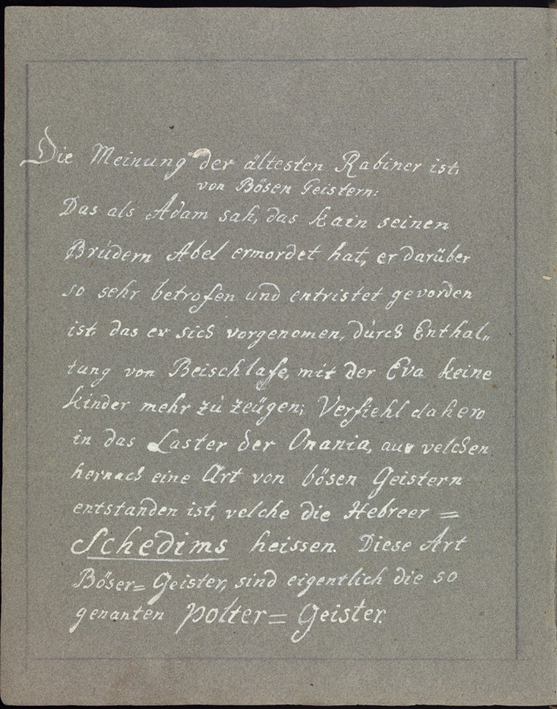 Die Meinung der ältesten Rabiner ist,
von Bösen Geistern:
Das als Adam sah, das kain seinen
Brüdern Abel ermordet hat, er darüber
so sehr betrofen und entristet gevorden
ist, das er sich vorgenomen, dürch Enthal„
tung von Beischlafe, mit der Eva keine
kinder mehr zü zeügen; Verfiehl dahero
in das Laster der Onania, aus velchen
hernach eine Art von bösen Geistern
entstanden ist, velche die Hebreer =
Schedims heissen. Diese Art
Böser= Geister, sind eigentlich die so
genanten polter= Geister.